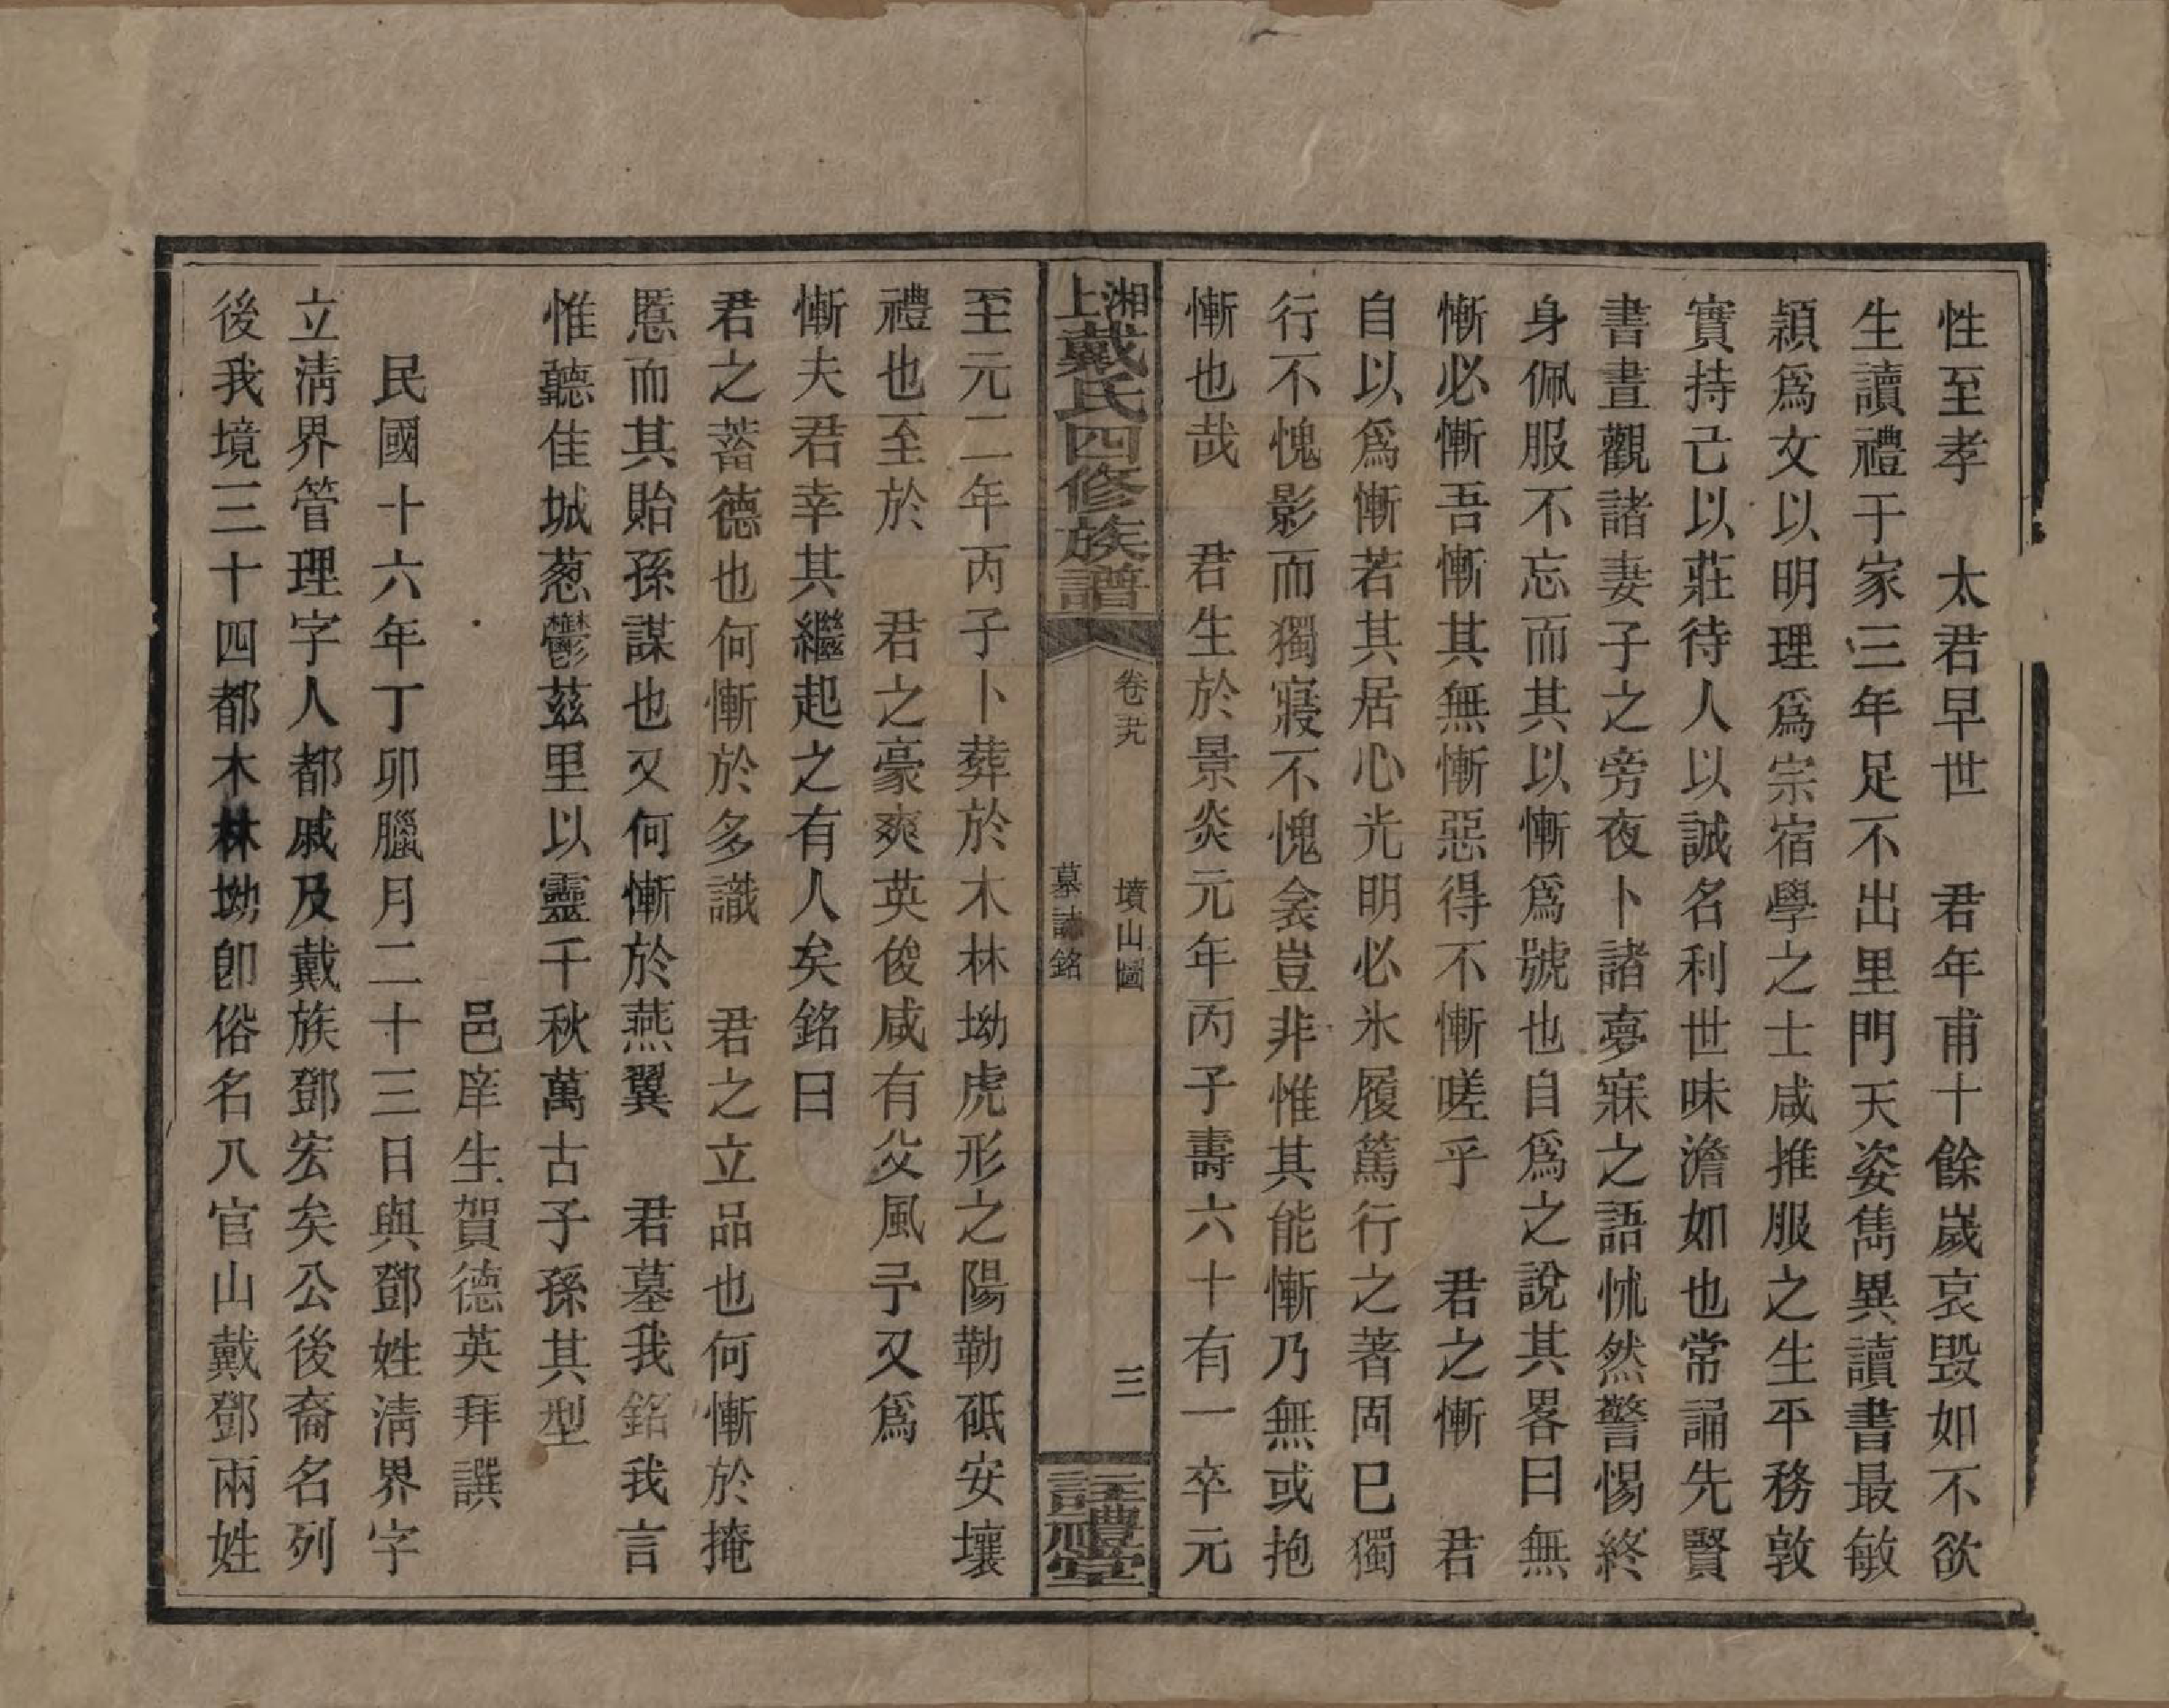 性至孝　太君早世　君年甫十餘歲哀毀如不欲
生讀禮于家三年足不出里門天姿雋異讀書最敏
穎爲文以明理爲宗宿學之士咸推服之生平務敦
實持己以莊待人以誠名利世味澹如也常誦先賢
書晝觀諸妻子之旁夜卜諸夢寐之語怵然警惕終
身佩服不忘而其以慚爲號也自爲之說其畧曰無
慚必慚吾慚其無慚惡得不慚嗟乎　君之慚　君
自以爲慚若其居心光明必氷履篤行之著固巳獨
行不愧影而獨寢不愧衾豈非惟其能慚乃無或抱
慚也哉　君生於景炎元年丙子壽六十有一卒元
湘上戴氏四修族譜
卷尹九　墳山圖　三
墓誌銘
註禮堂
至元二年丙子卜葬於木林坳虎形之陽勒砥安壤
禮也至於　君之豪爽英俊咸有父風予又爲
慚夫君幸其繼起之有人矣銘曰
君之蓄德也何慚於多識　君之立品也何慚於掩
慝而其貽孫謀也又何慚於燕翼　君墓我銘我言
惟聽佳城葱鬱茲里以靈千秋萬古子孫其型
邑庠生賀德英拜譔
民國十六年丁卯臘月二十三日與鄧姓淸界字
立淸界管理字人都戚及戴族鄧宏矣公後裔名列
後我境三十四都木林坳卽俗名八官山戴鄧兩姓